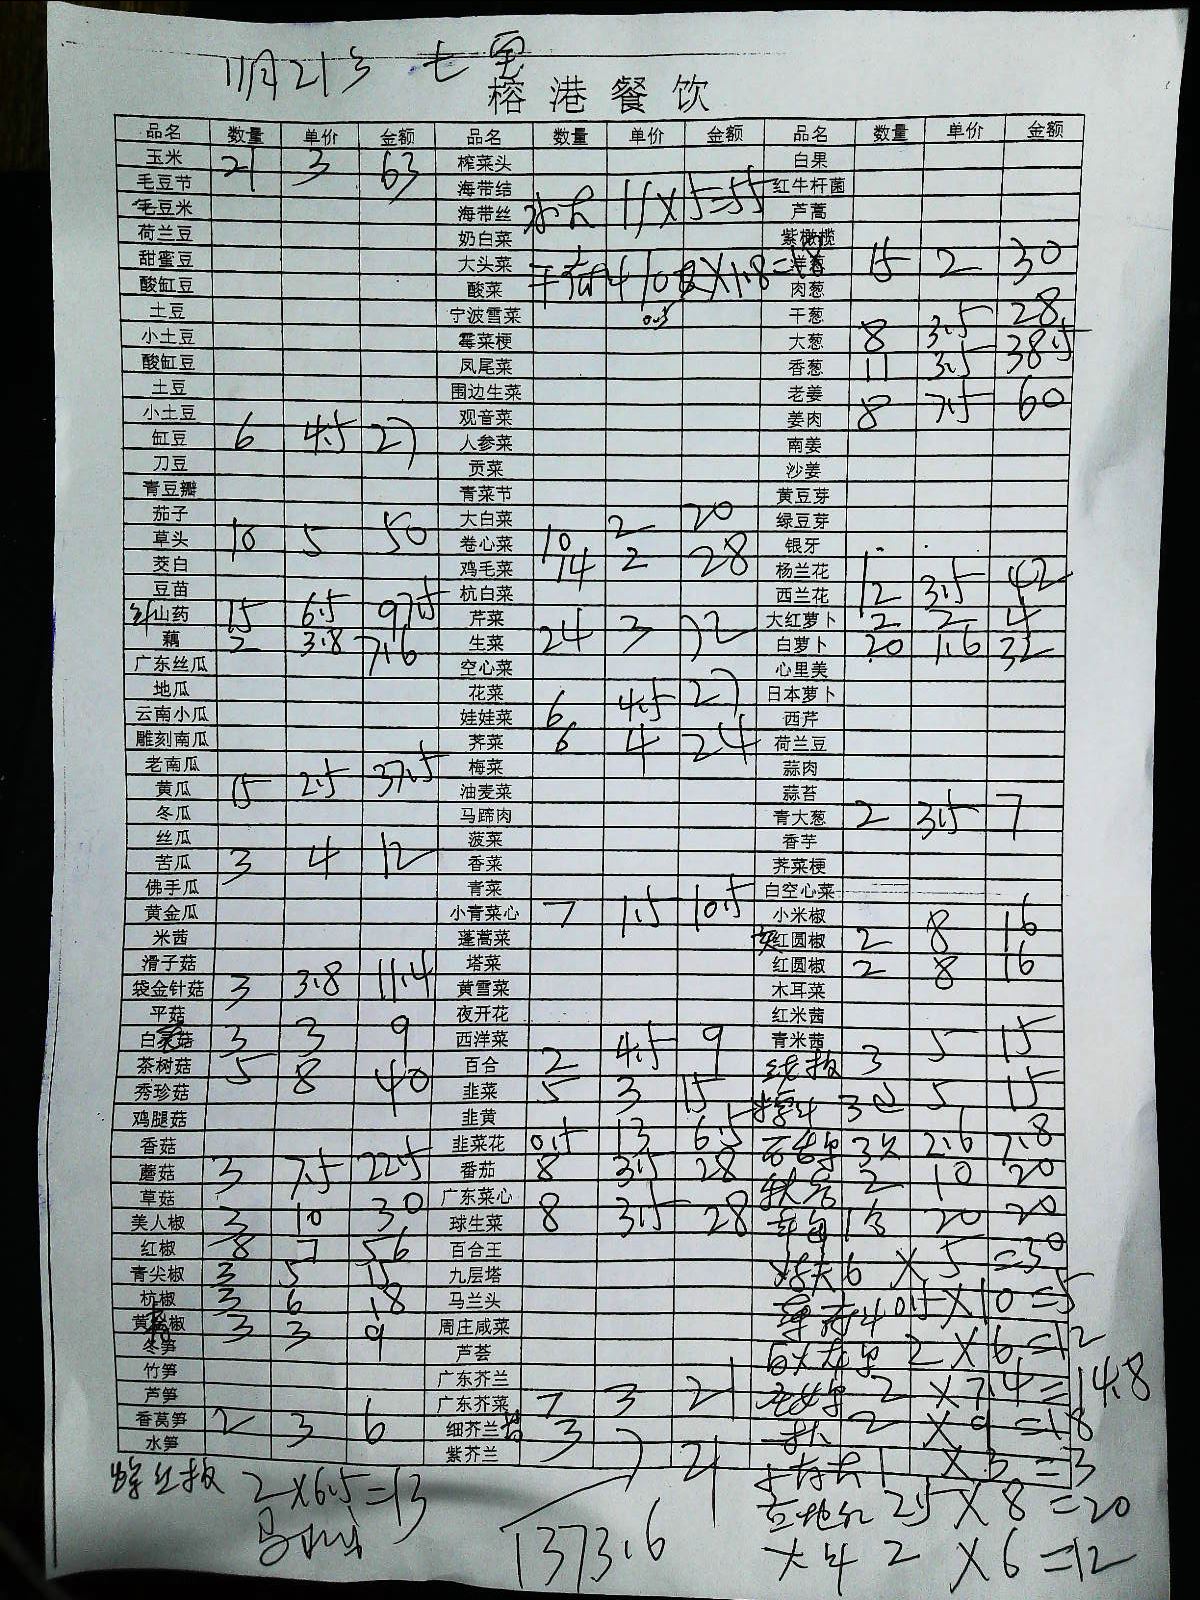 11月21号
榕港餐饮
品名 数量 单价 金额 品名 数量 单价 金额 品名 数量 单价 金额
玉米 21 3 63 榨菜头 白果
毛豆节 海带结 红牛杆菌
毛豆米 海带丝 11×5=55 芦蒿
荷兰豆 奶白菜 紫橄榄
甜蜜豆 大头菜 洋葱 15 2 30
酸缸豆 酸菜 肉葱
土豆 宁波雪菜 干葱 8 3.5 28
小土豆 霉菜梗 大葱
酸缸豆 凤尾菜 香葱 11 3.5 38.5
土豆 围边生菜 老姜
小土豆 观音菜 姜肉 8 7.5 60
缸豆 6 4.5 27 人参菜 南姜
刀豆 贡菜 沙姜
青豆瓣 青菜节 黄豆芽
茄子 大白菜 10 2 20 绿豆芽
草头 10 5 50 卷心菜 银牙
茭白 鸡毛菜 14 2 28 杨兰花
豆苗 杭白菜 西兰花 12 3.5 42
山药 15 6.5 97.5 芹菜 大红萝卜 2 2 4
藕 2 3.8 7.6 生菜 24 3 72 白萝卜 20 1.6 32
广东丝瓜 空心菜 心里美
地瓜 花菜 日本萝卜
云南小瓜 娃娃菜 6 4.5 27 西芹
雕刻南瓜 荠菜 6 4 24 荷兰豆
老南瓜 梅菜 蒜肉
黄瓜 15 2.5 37.5 油麦菜 蒜苔
冬瓜 马蹄肉 青大葱 2 3.5 7
丝瓜 菠菜 香芋
苦瓜 3 4 12 香菜 荠菜梗
佛手瓜 青菜 白空心菜
黄金瓜 小青菜心 7 1.5 10.5 小米椒
米茜 蓬蒿菜 红圆椒 2 8 16
滑子菇 塔菜 红圆椒 2 8 16
袋金针菇 3 3.8 11.4 黄雪菜 木耳菜
平菇 夜开花 红米茜
白菇 3 3 9 西洋菜 青米茜
茶树菇 5 8 40 百合 2 4.5 9 3 5 15
秀珍菇 韭菜 5 3 15 3 5 15
鸡腿菇 韭黄
香菇 韭菜花 0.5 13 6.5 3 2.6 7.8
蘑菇 3 7.5 22.5 番茄 8 3.5 28 2 10 20
草菇 广东菜心
美人椒 3 10 30 球生菜 8 3.5 28 20 20
红椒 8 7 56 百合王 6×5=30
青尖椒 3 5 15 九层塔
杭椒 3 6 18 马兰头 0.5×10=5
黄椒 3 3 9 周庄咸菜
冬笋 芦荟 2×6=12
竹笋 广东芥兰
芦笋 广东芥菜 7 3 21 2×7.4=14.8
香莴笋 2 3 6 细芥兰 3 7 21 2×9=18
水笋 紫芥兰 1×3=3
2×6.5=13
2.5×8=20
1373.6
2×6=12